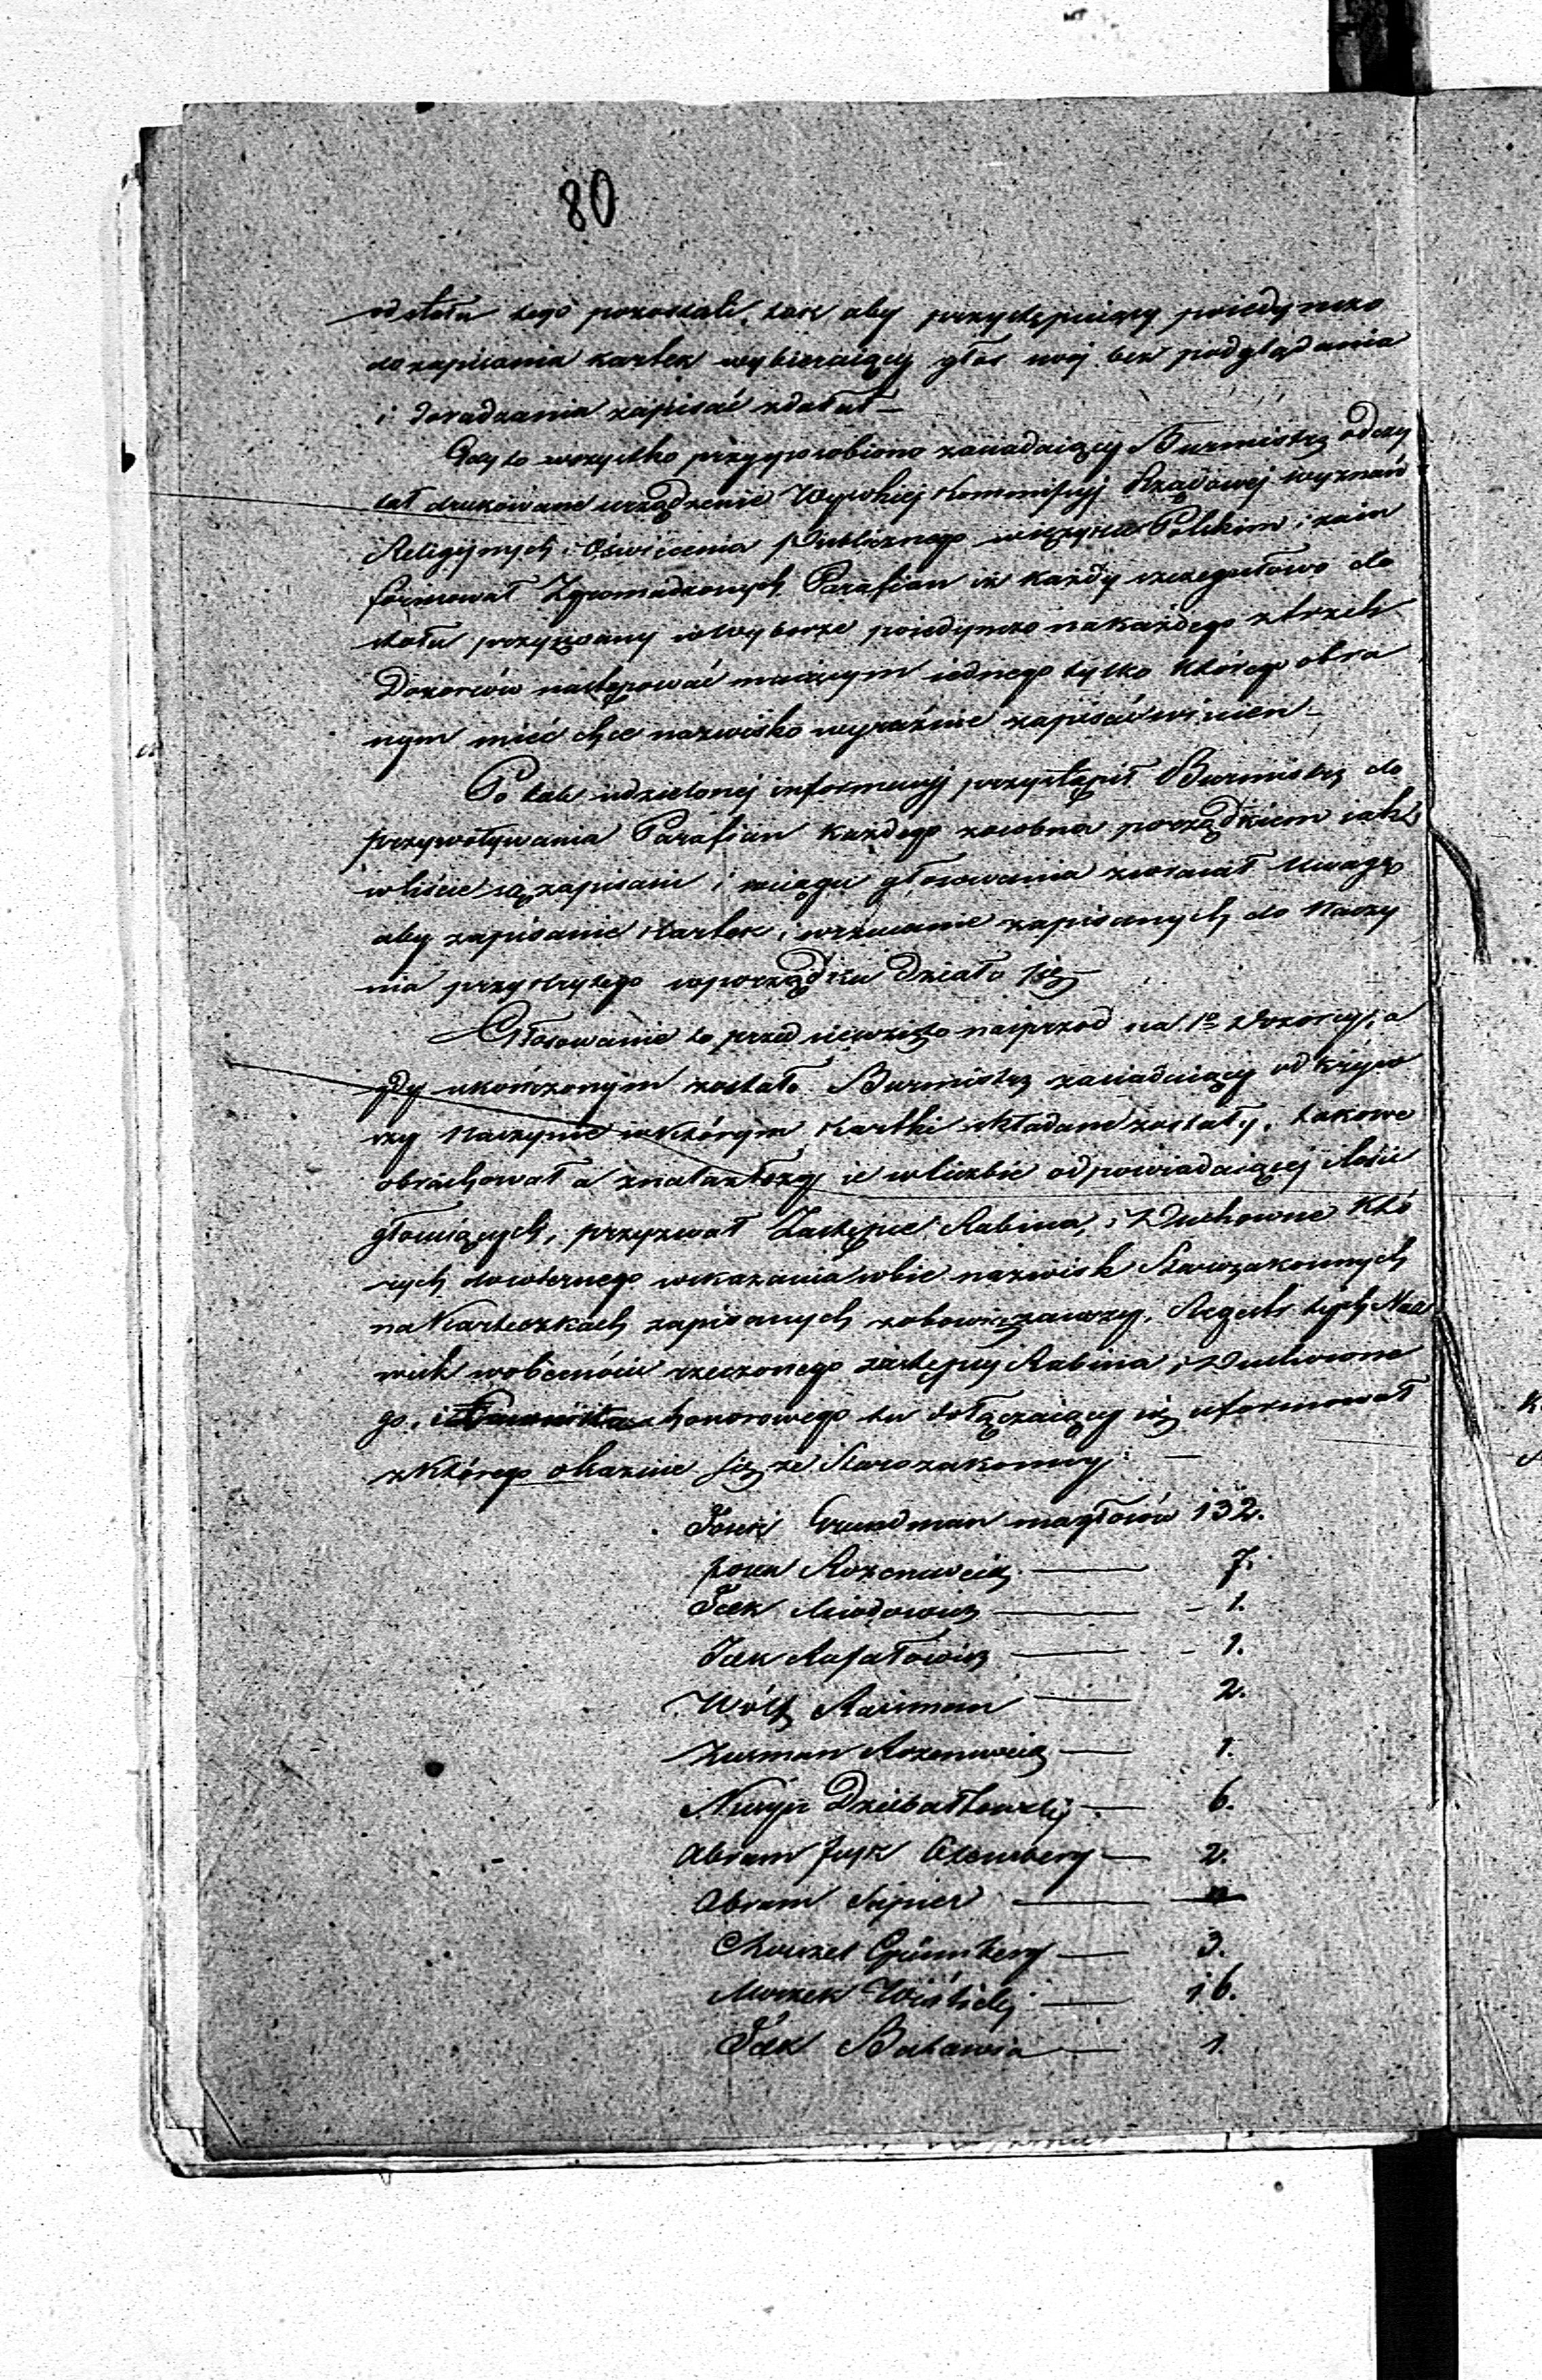 80
od stołu tego pozostali, tak aby przystępuiący poiedynczo
do zapisania kartek wybieraiący głos swój bez podglądania
i doradzania zapisać zdołał –
Gdy to wszystko przysposobiono zasiadaiący Burmistrz odczy
tał drukowane urządzenie Wysokiej Kommissyi Rządowej wyznań
Religijnych i Oświecenia Publicznego w ięzyku Polskim i zain
formował Zgromadzonych Parafian iż każdy szczegułowo do
stołu przyzwany w wyborze poiedynczo na każdego z trzech
Dozorców następować maiącym iednego tylko którego obra
nym mieć chce nazwisko wyraźnie zapisać winien –
Po tak udzielonej informacyi przystąpił Burmistrz do
przywoływania Parafian każdego z osobna porządkiem iak
w liście są zapisani i w ciągu głosowania zwracał uwagę
aby zapisanie kartek i wrzucanie zapisanych do Naczy
nia przykrytego w porządku działo się
Głosowanie to przed siewzięto naiprzod na 1o Dozorcę, a
gdy ukończonym zostało Burmistrz zasiadaiący odkryw
szy Naczynie w którym kartki składane zostały, takowe
obrachował a znalazłszy ie w liczbie odpowiadaiącej ilości
głosuiących, przyzwał Zastępcę Rabina, i Duchowne któ
rych do wiernego wskazania sobie nazwisk Starozakonnych
na karteczkach zapisanych zobowiązawszy, Regestr tych Naz
wisk w obecności rzeczonego zastępcy Rabina, i Duchowne
go, i honorowego tu dołączaiący się uformował
z którego okazuie się że Starozakonny: —
Josek Grundman ma głosów 132.
Josek Rozencweig — 7.
Icek Miodowicz — 1.
Icek Rafałowicz — 1.
Wolf Naiman — 2.
Zurman Rozencweig — 1.
Działoszycki — 6.
Abram Oxenberg — 2.
Abram
Grünberg — 3.
Moszek Wiślicki — 16.
Icek Batawia — 1.